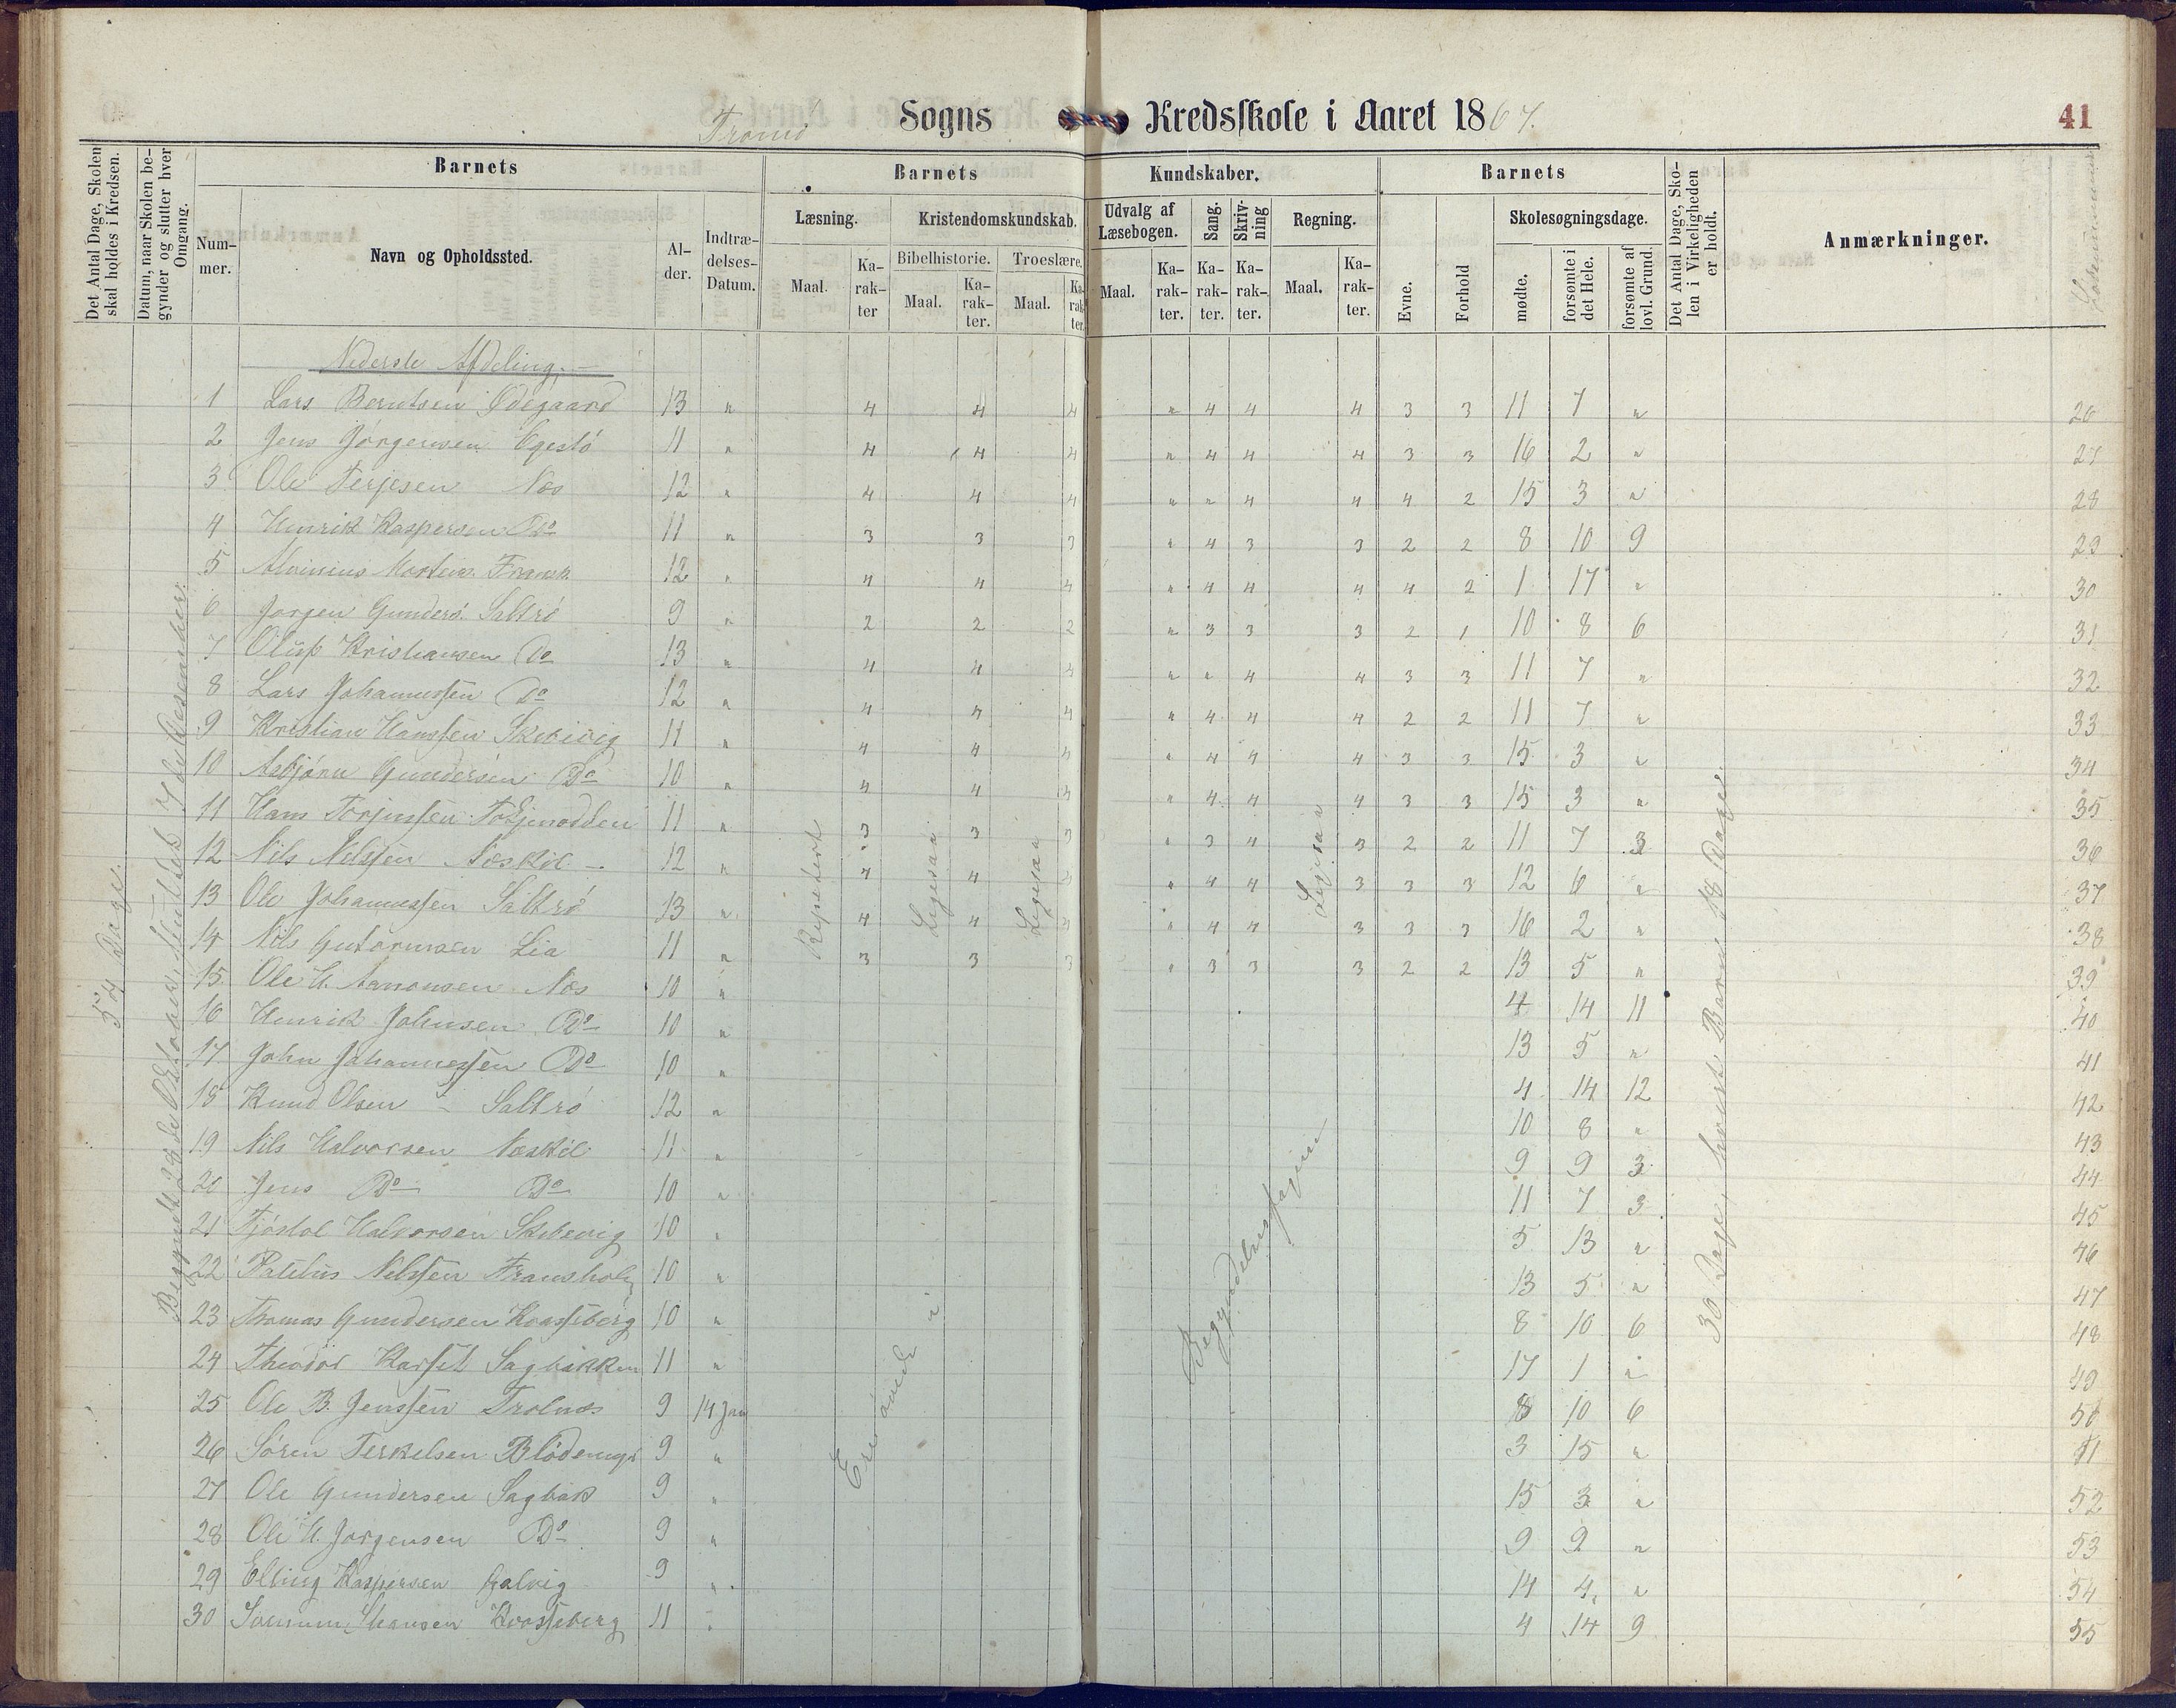 Tromø Sogns Kredsskole i Aaret 1867. 41
Det Antal Dage, Skolen skal holdes i Kredsen.
Datum, naar Skolen begynder og slutter hver Omgang.
Barnets
Nummer.
Navn og Opholdssted.
Alder.
Indtrædelses-Datum.
Barnets Kundskaber.
Læsning.
Maal. Karakter
Kristendomskundskab.
Bibelhistorie.
Maal. Karakter.
Troeslære.
Maal. Karakter.
Udvalg af Læsebogen.
Maal. Karakter.
Sang.
Karakter.
Skrivning
Karakter.
Regning.
Maal. Karakter.
Barnets
Evne.
Forhold
Skolesøgningsdage.
mødte.
forsømte i det Hele.
forsømte af lovl. Grund.
Det Antal Dage, Skolen i Virkeligheden er holdt.
Anmærkninger.
Nederste Afdeling.
1 Lars Berntsen Ødegaard 13 " 4 4 4 " 4 4 4 3 3 11 7 " 26
2 Jens Jørgensen 11 " 4 4 4 " 4 4 4 3 3 16 2 " 27
3 Ole Terjesen Næs 12 " 4 4 4 " " 4 4 4 2 15 3 " 28
4 Henrik Kaspersen Do 11 " 3 3 3 " 4 3 3 2 2 8 10 9 29
5 12 " 4 4 4 " 4 4 4 4 2 1 17 " 30
6 Jørgen Gunders. Saltrø 9 " 2 2 2 " 3 3 3 2 1 10 8 6 31
7 Oluf Kristiansen Do 13 " 4 4 4 " " 4 4 3 3 11 7 " 32
8 Lars Johannessen Do 12 " 4 4 4 " 4 4 4 2 2 11 7 " 33
9 Kristian Hanssen Skibevig 11 " 4 4 4 " 4 4 4 3 3 15 3 " 34
10 Asbjørn Gundersen Do 10 " 4 4 4 " 4 4 4 3 3 15 3 " 35
11 Hans Torjussen 11 " 3 3 3 " 3 4 3 2 2 11 7 3 36
12 Nils Nelssen Næskil 12 " 4 4 4 " 4 4 3 3 3 12 6 " 37
13 Ole Johannessen Saltrø 13 " 4 4 4 " 4 4 3 3 3 16 2 " 38
14 Nils Gutormsen Lia 11 " 3 3 3 " 3 3 3 2 2 13 5 " 39
15 Ole H. Aanonsen Næs 10 " 4 14 11 40
16 Henrik Johnsen Do 10 " 13 5 " 41
17 John Johannessen Do 10 " 4 14 12 42
18 Knud Olsen Saltrø 12 " 10 8 " 43
19 Nils Halvorsen Næskil 11 " 9 9 3 44
20 Jens Do Do 10 " 11 7 3 45
21 Tjøstol Halvorsen Skibevig 10 " 5 13 " 46
22 Nelssen 10 " 13 5 " 47
23 Thomas Gundersen Kaasseberg 10 " 8 10 6 48
24 Theodor Sagbakken 11 " 17 1 " 49
25 Ole B. Jenssen Trolnæs 9 14 Jan 8 10 6 50
26 Søren Terkelsen 9 " 3 15 " 51
27 Ole Gundersen Sagbak 9 " 15 3 " 52
28 Ole H. Jørgensen Do 9 " 9 9 " 53
29 Elling Kaspersen Galvig 9 " 14 4 " 54
30 11 " 4 14 9 55
54 Dage.
Begyndt 28de Oktober, sluttet 7de Desember.
Repetert
Ligesaa
Ligesaa
Ligesaa
Ere øvede i Begyndelsesfagene
36 Dage, hvert Barn 18 Dage.